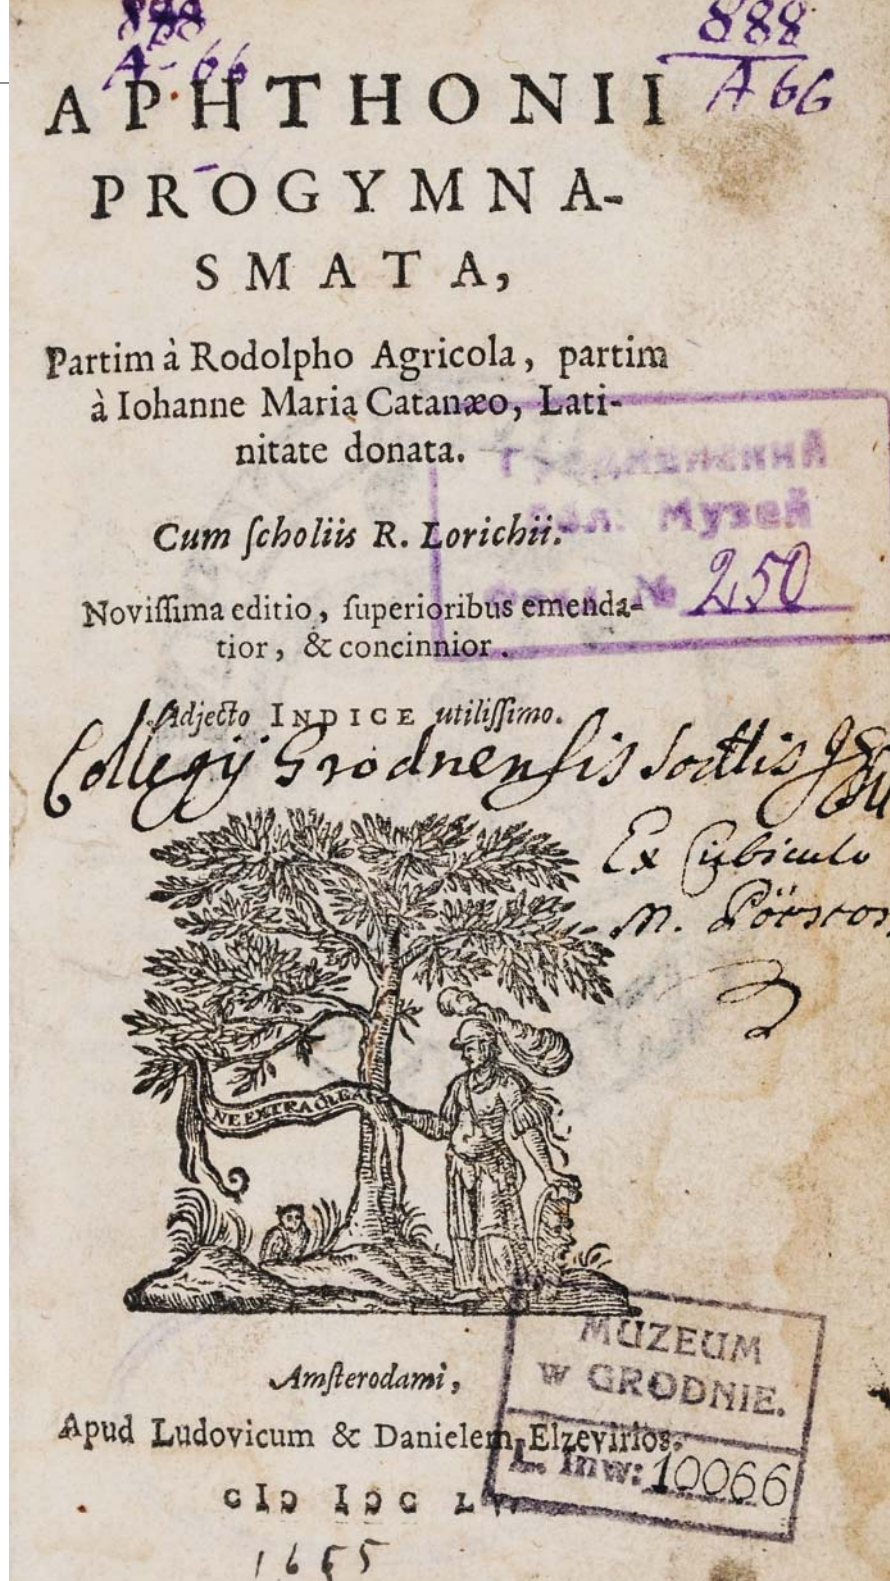 888
A-66
888
A 66
APHTHONII
PROGYMNA-
SMATA,
Partim à Rodolpho Agricola, partim
à Iohanne Maria Catanæo, Lati-
nitate donata.
Cum ſcholiis R. Lorichii.
Noviſſima editio, ſuperioribus emenda-
tior, & concinnior.
Adjecto INDICE utiliſſimo.
Музей
№ 250
Collegij Grodnensis
Ex Cubiculo
M.
NE EXTRA OLEAS
Amſterodami,
Apud Ludovicum & Danielem Elzevirios.
CIↃ IↃC
1655
MUZEUM
W GRODNIE.
L. Inw: 10066